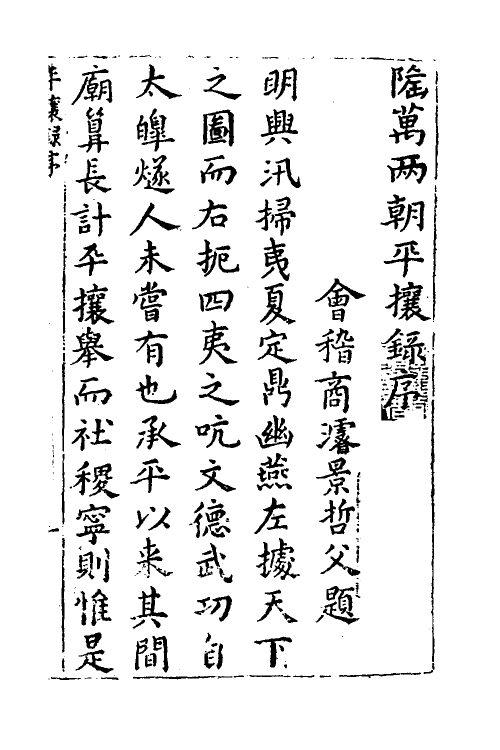 隆萬两朝平攘錄序
會稽商濬景哲父題
明興汛掃夷夏定鼎幽燕左據天下
之圖而右扼四夷之吭文德武功自
太皥燧人未嘗有也承平以来其間
廟算長計平攘舉而社稷寧則惟是
平攘錄序
一